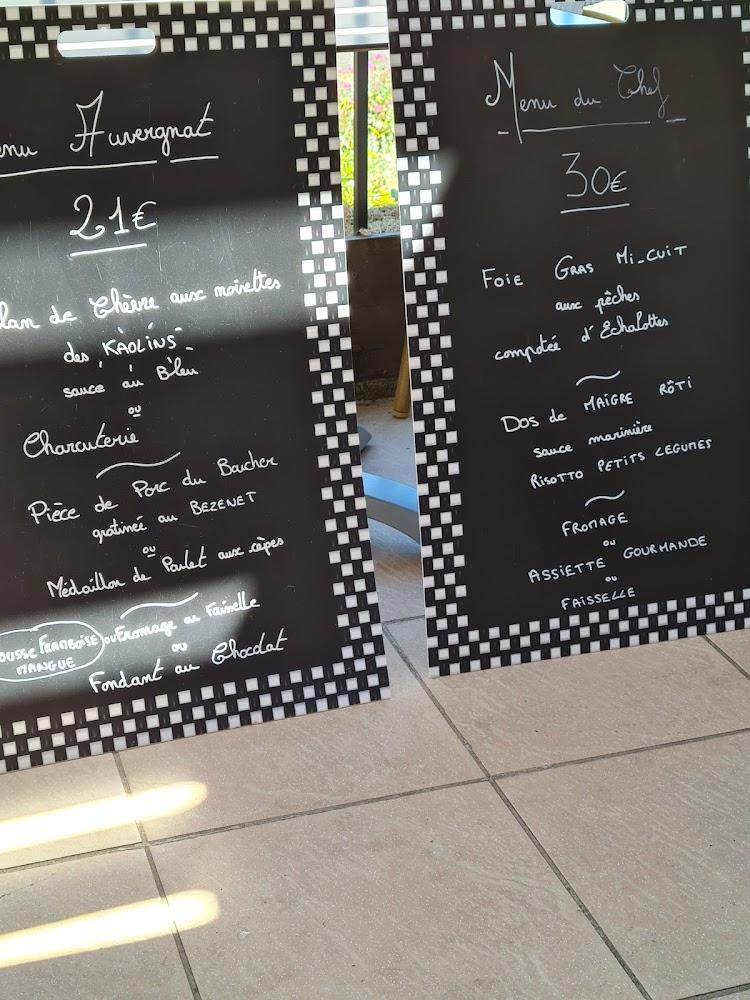 enu Auvergnat
21€
lan de Chèvre aux noisettes
des "KAOLINS"
sauce au Bleu
ou
Charcuterie
Pièce de Porc du Boucher
gratinée au BEZENET
ou
Médaillon de Poulet aux cèpes
OUSSE FRAMBOISE MANGUE ou Fromage ou Faisselle
ou
Fondant au Chocolat
Menu du Chef
30€
FOIE GRAS MI-CUIT
aux pêches
compotée d'Echalottes
DOS de MAIGRE RÔTI
sauce marinière
RISOTTO PETITS LEGUMES
FROMAGE
ou
ASSIETTE GOURMANDE
ou
FAISSELLE